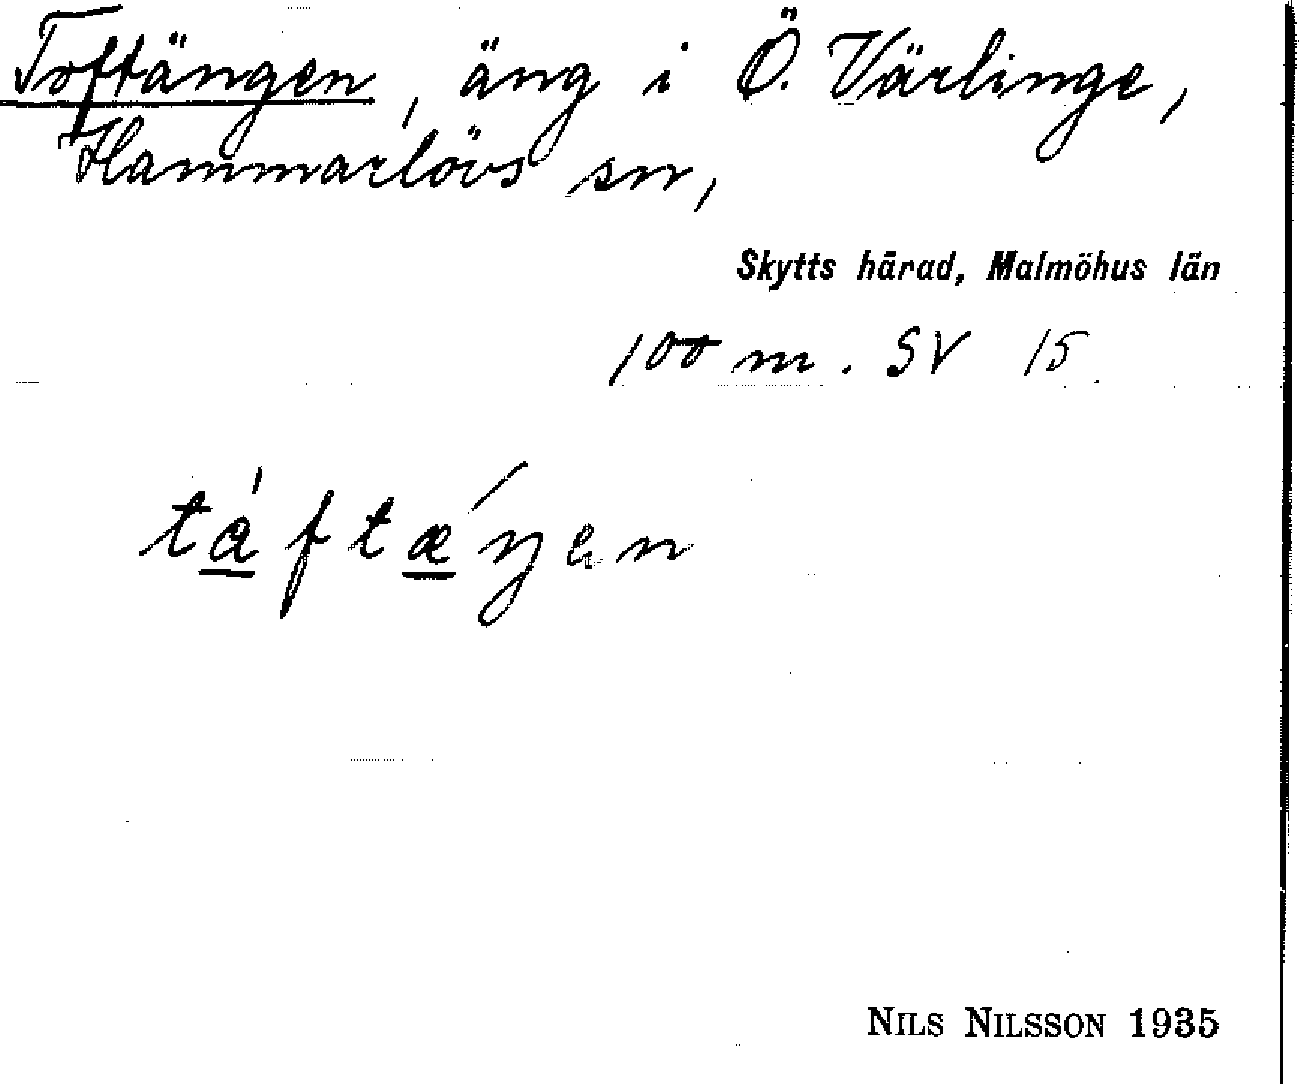 Toftängen, äng i Ö. Värlinge,
Hammarlövs sn,
Skytts härad, Malmöhus län
100 m. SV 15
tàftǽŋen
NILS NILSSON 1935